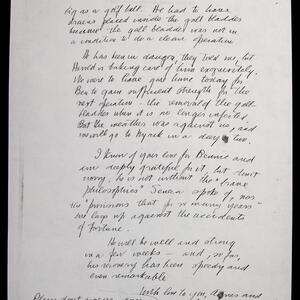 big as a golf ball. He had to leave
drains placed inside the gall bladder
because the gall bladder was not in
a condition to do a clean operation
He has been in danger, they told me, but
Harold is taking care of him exquisitely.
We were to leave quiet time today for
Ben to gain sufficient strength for the
next operation - the removal of the gall-
bladder when it is no longer infected.
But the weather was against us, and
we will go to Nyack in a day or two.
I know of your love for Bennie and
am deeply grateful for it, but don't
worry, he is not without the "brave
philosophies" Seneca spoke of, nor
the "provisions that for many years"
he lays up against the accidents
of Fortune.
He will be well and strong
in a few weeks - and, so far,
his recovery has been speedy and
even remarkable
With love to you, and
Please don't